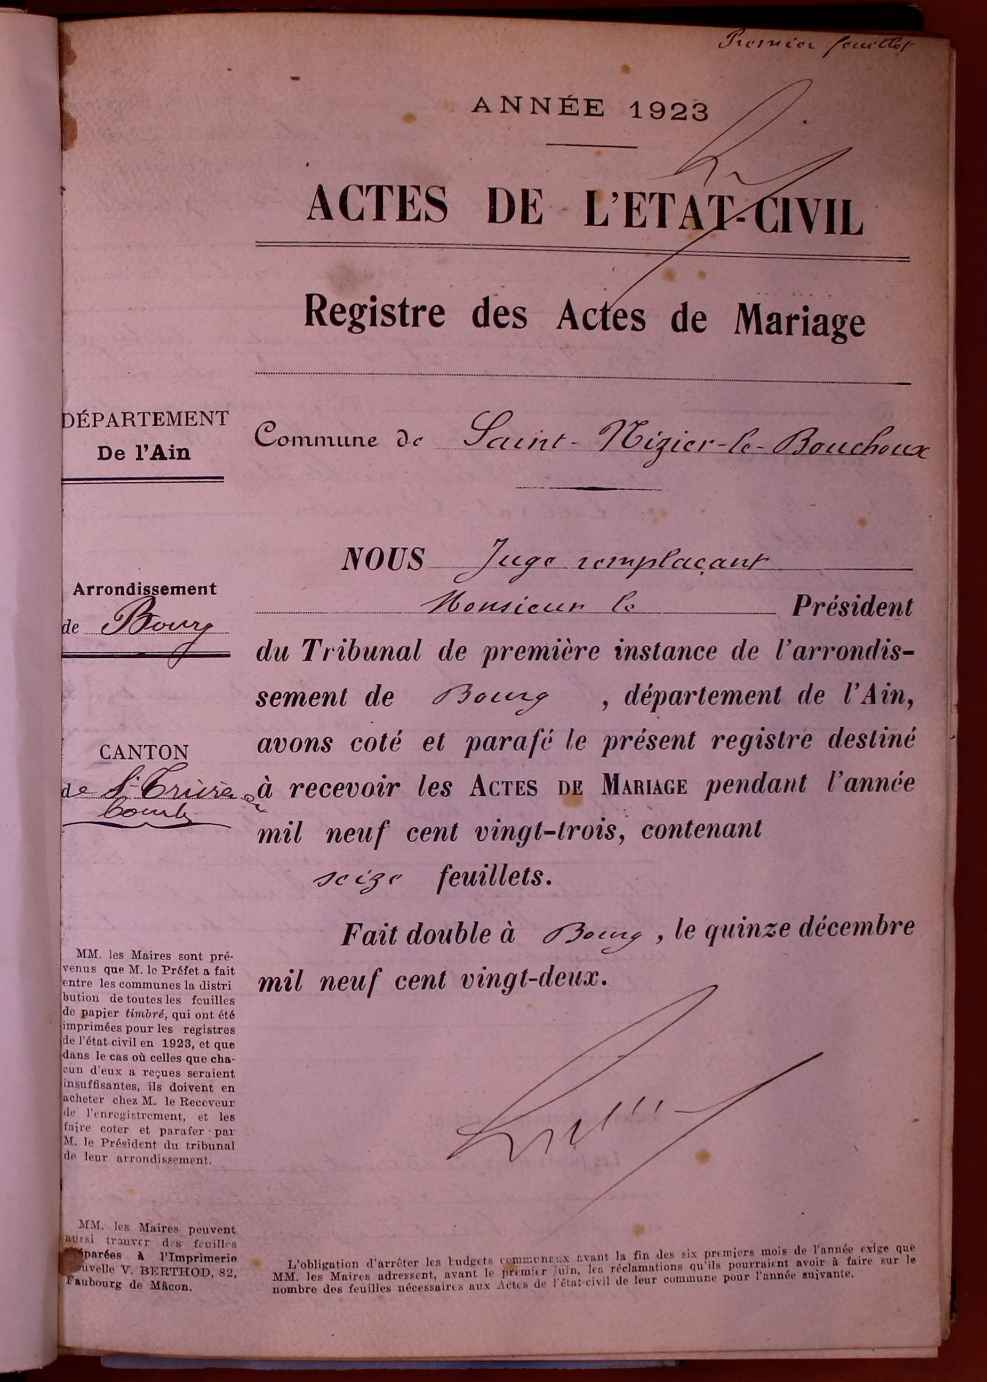 Premier feuillet
ANNÉE 1923
ACTES DE L'ETAT-CIVIL
Registre des Actes de Mariage
DÉPARTEMENT
De l'Ain
Commune de Saint-Nizier-le-Bouchoux
Arrondissement
de Bourg
CANTON
de St Trivier de
Courtes
NOUS Juge remplaçant
Monsieur le Président
du Tribunal de première instance de l'arrondis-
sement de Bourg, département de l'Ain,
avons coté et parafé le présent registre destiné
à recevoir les ACTES DE MARIAGE pendant l'année
mil neuf cent vingt-trois, contenant
seize feuillets.
Fait double à Bourg, le quinze décembre
mil neuf cent vingt-deux.
MM. les Maires sont pré-
venus que M. le Préfet a fait
entre les communes la distri
bution de toutes les feuilles
de papier timbré, qui ont été
imprimées pour les registres
de l'état-civil en 1923, et que
dans le cas où celles que cha-
cun d'eux a reçues seraient
insuffisantes, ils doivent en
acheter chez M. le Receveur
de l'enregistrement, et les
faire coter et parafer par
M. le Président du tribunal
de leur arrondissement.
MM. les Maires peuvent
aussi trouver des feuilles
séparées à l'Imprimerie
Nouvelle V. BERTHOD, 82,
Faubourg de Mâcon.
L'obligation d'arrêter les budgets communaux avant la fin des six premiers mois de l'année exige que
MM. les Maires adressent, avant le premier juin, les réclamations qu'ils pourraient avoir à faire sur le
nombre des feuilles nécessaires aux Actes de l'état-civil de leur commune pour l'année suivante.